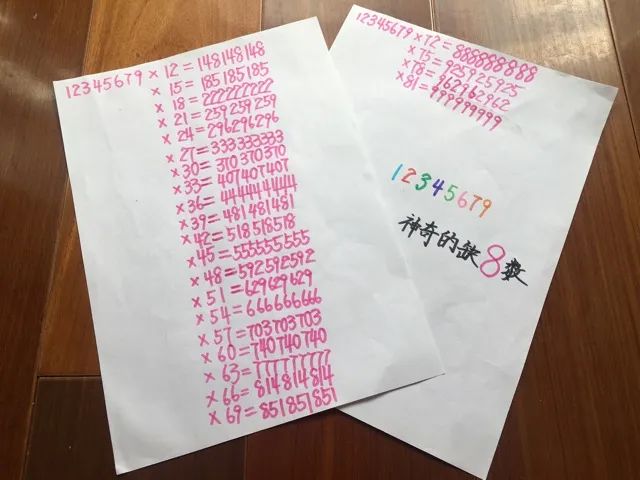 12345679 × 12 = 148148148
× 15 = 185185185
× 18 = 222222222
× 21 = 259259259
× 24 = 296296296
× 27 = 333333333
× 30 = 370370370
× 33 = 407407407
× 36 = 444444444
× 39 = 481481481
× 42 = 518518518
× 45 = 555555555
× 48 = 592592592
× 51 = 629629629
× 54 = 666666666
× 57 = 703703703
× 60 = 740740740
× 63 = 777777777
× 66 = 814814814
× 69 = 851851851
12345679 × 72 = 888888888
× 75 = 925925925
× 78 = 962962962
× 81 = 999999999
12345679
神奇的缺8数